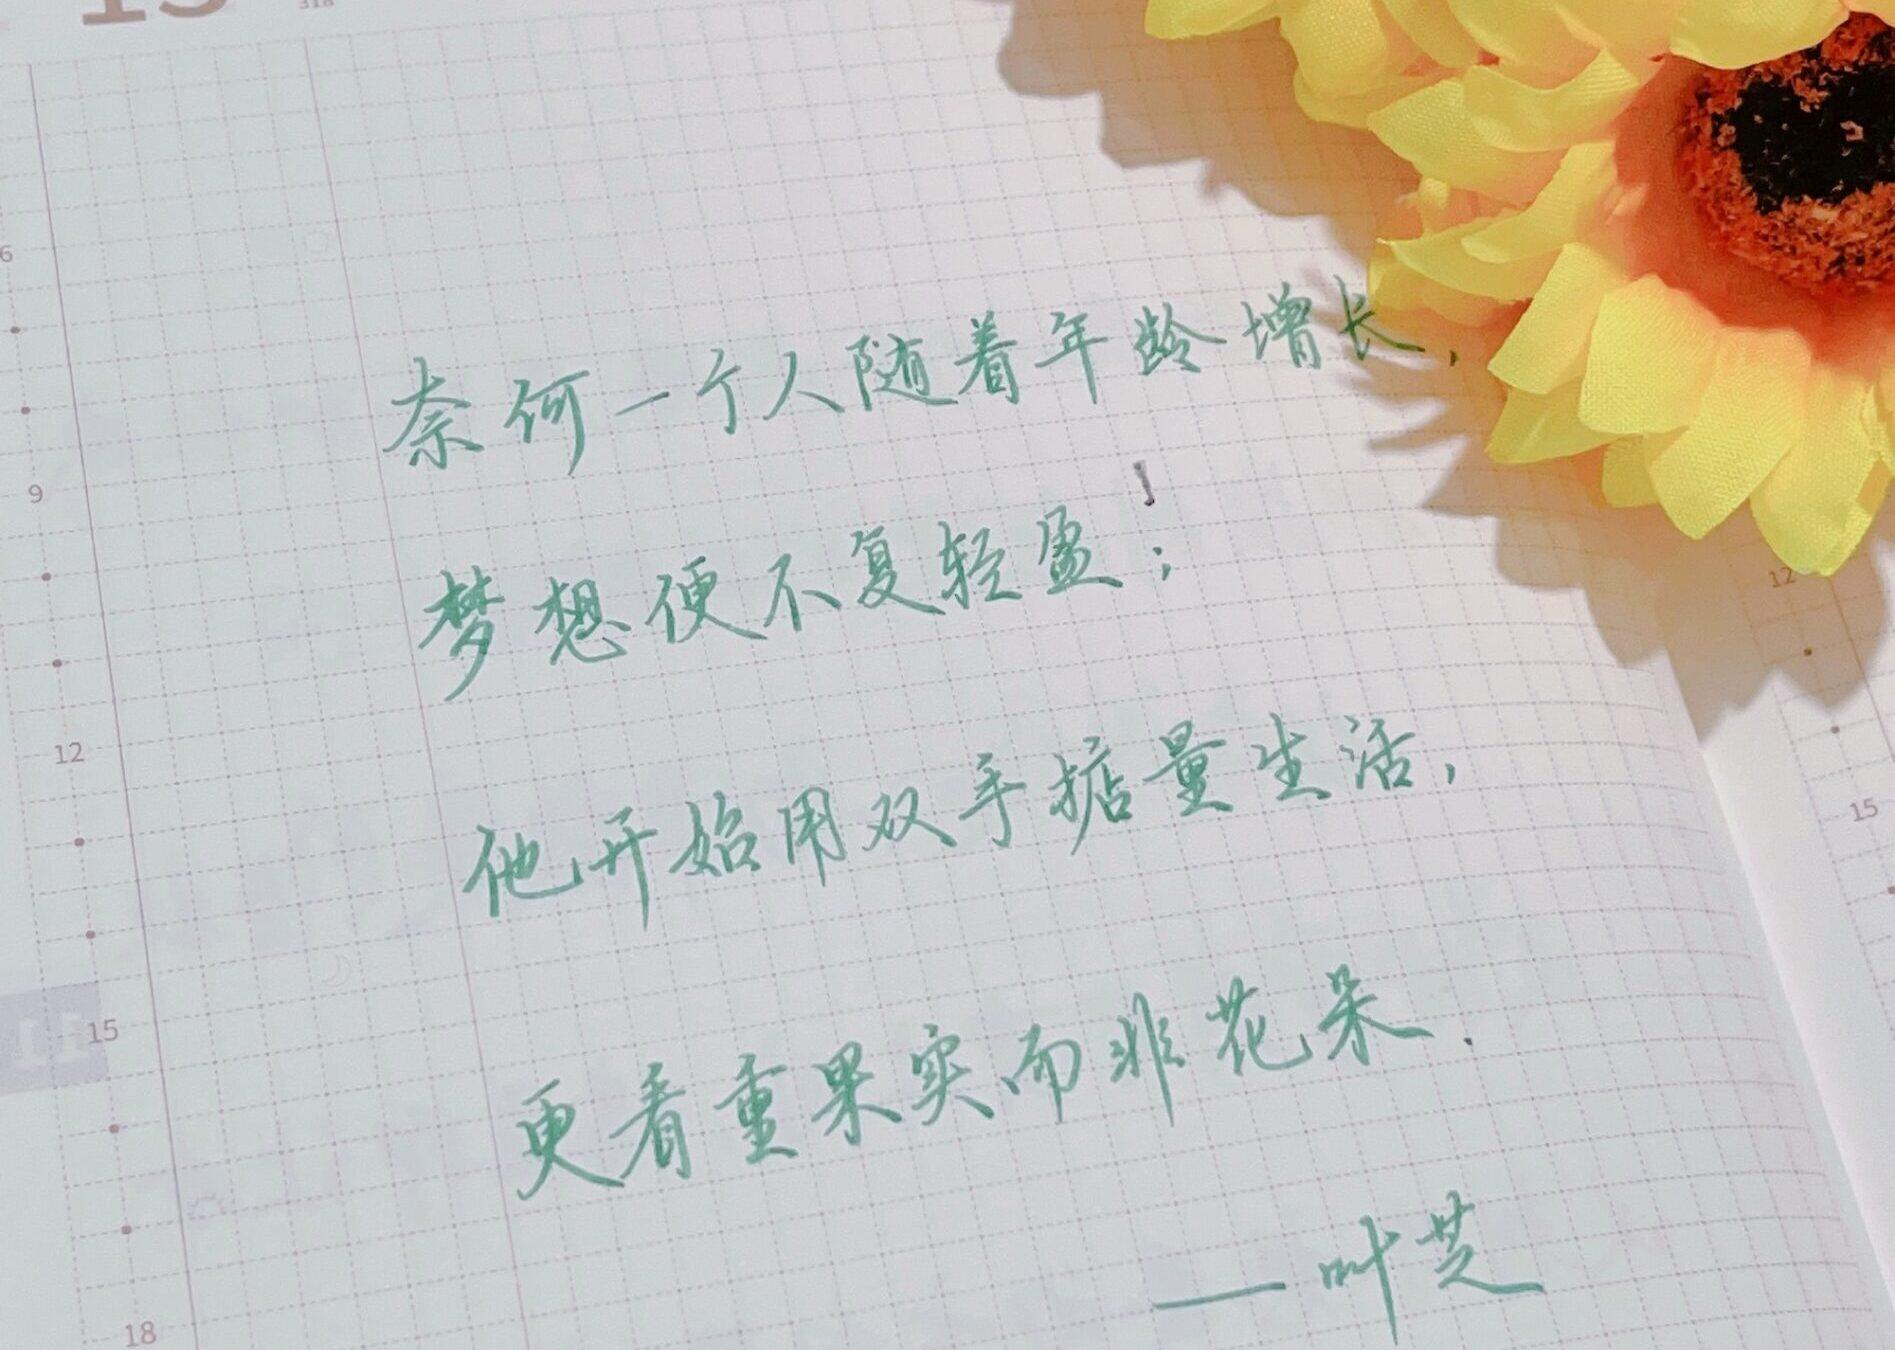 13
318
6
奈何一个人随着年龄增长,
9
梦想便不复轻盈;
12
他开始用双手掂量生活,
更看重果实而非花朵.
——叶芝
11
15
18
12
15